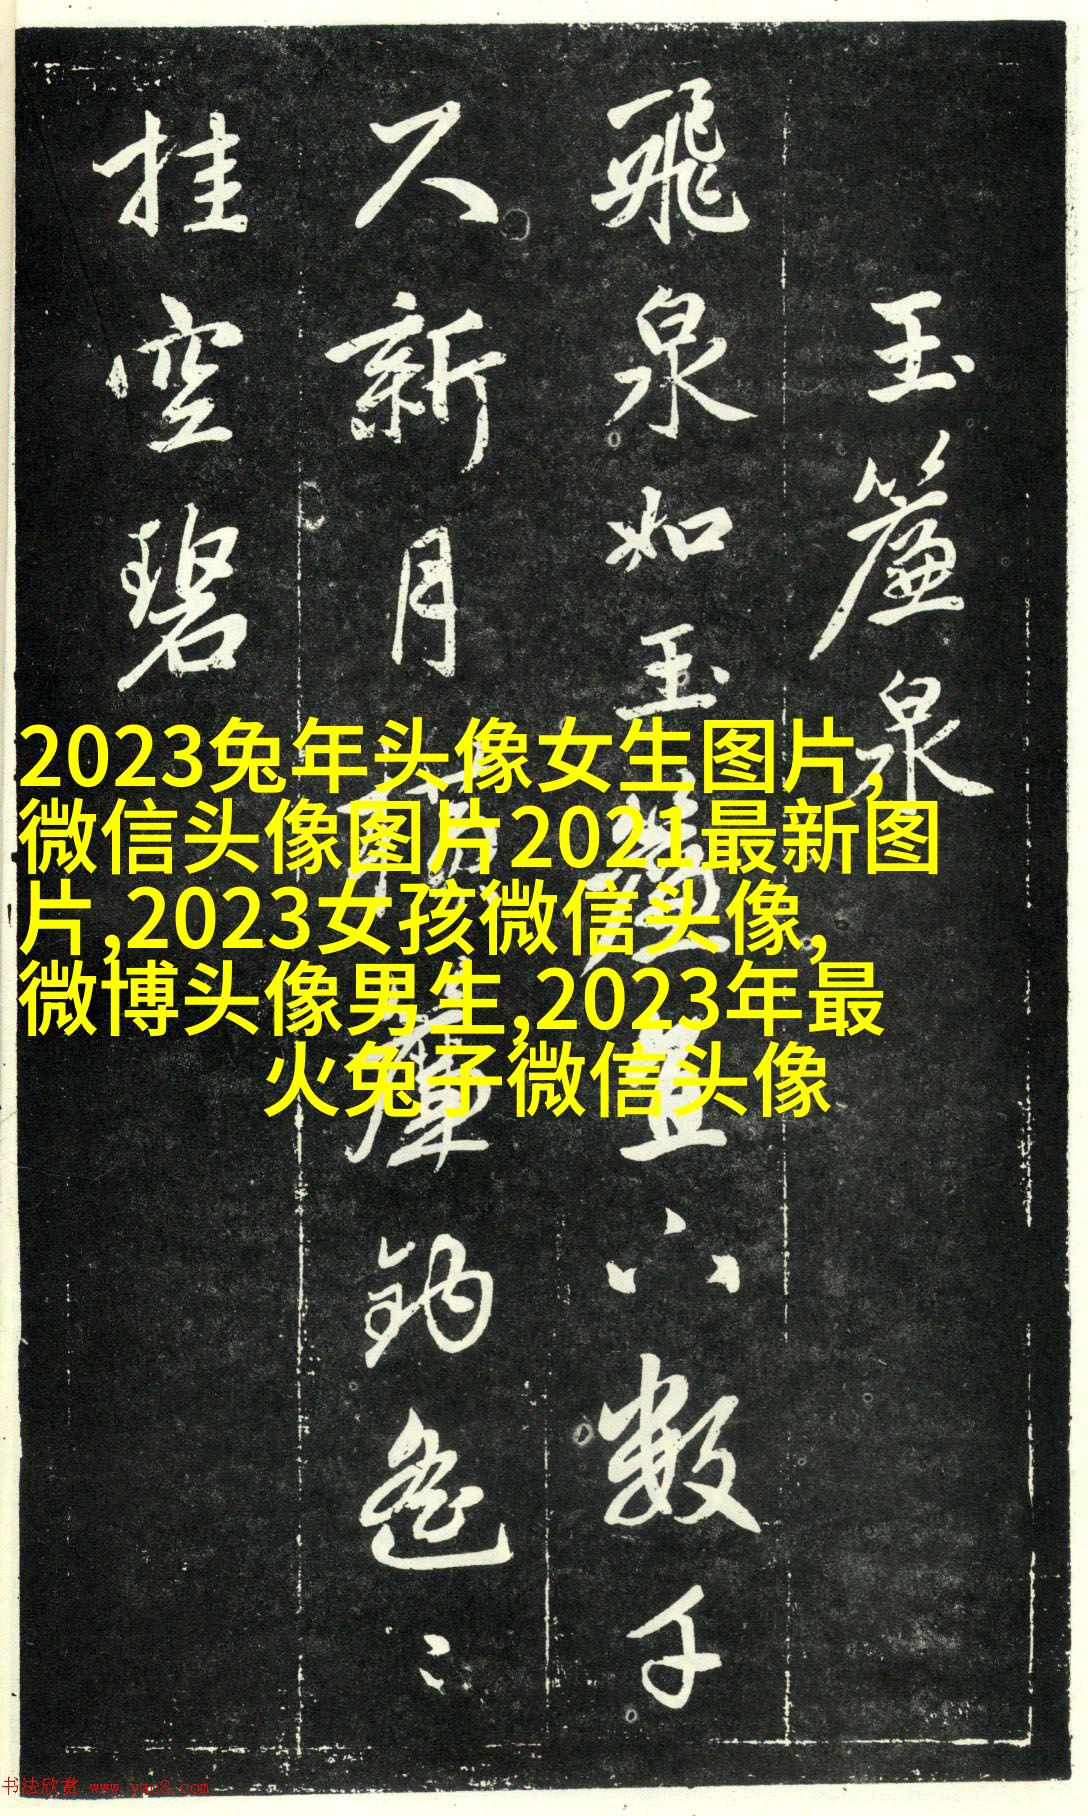 玉簾泉
飛泉如玉簾直下數千
尺新月簾鈎遙〻
挂空碧
2023兔年头像女生图片,
微信头像图片2021最新图
片,2023女孩微信头像,
微博头像男生,2023年最
火兔子微信头像
书法欣赏 www.yac8.com